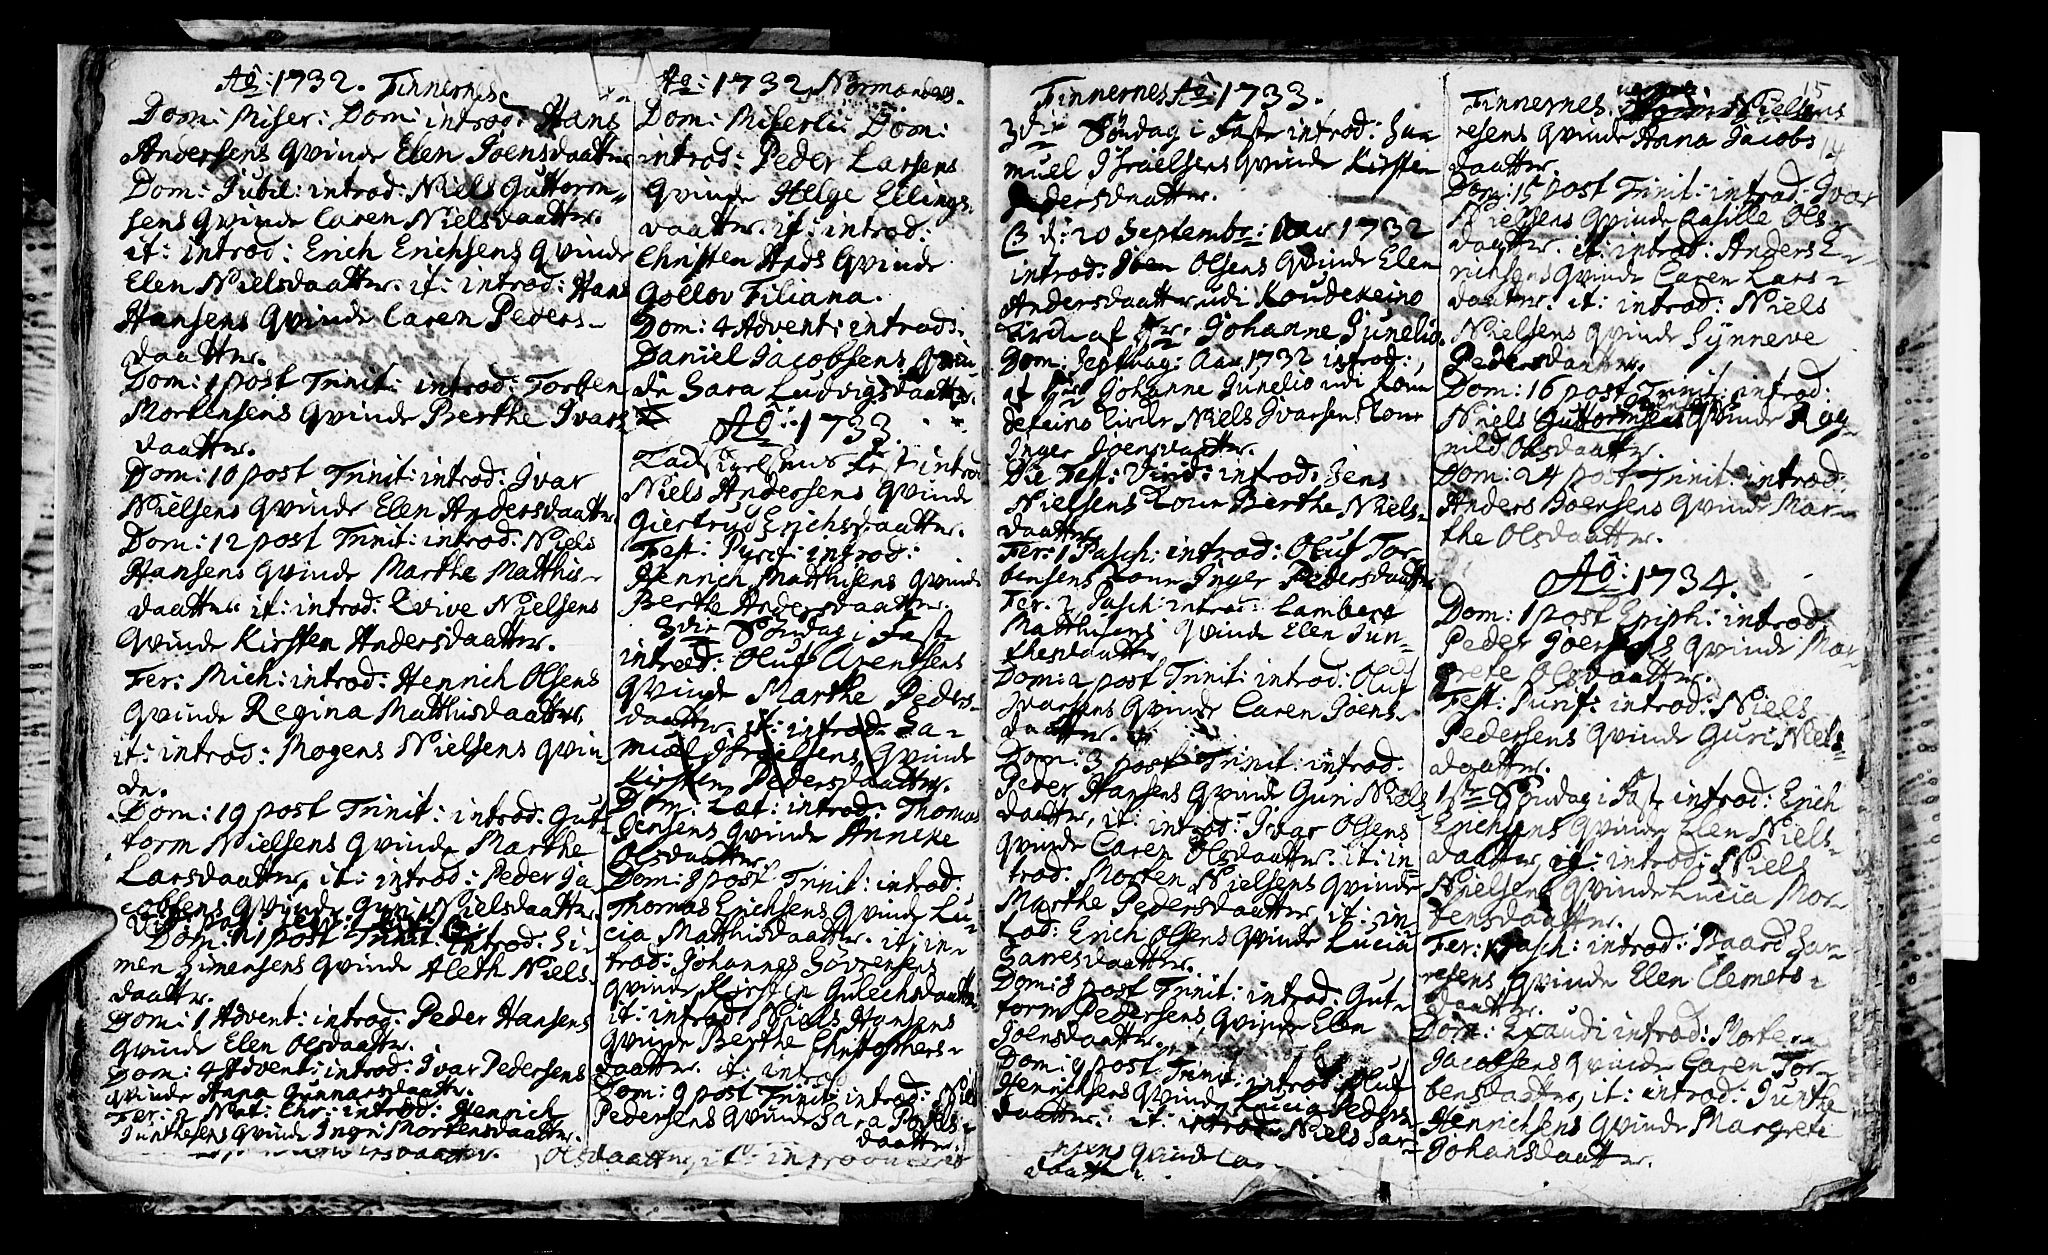 Aõ: 1732. Finnernes
Dom: Miser: Dom: introd: Hans
Andersens Qvinde Elen Joensdaatter
Dom: Jubil: introd: Niels Guttorm-
sens Qvinde Caren Nielsdaatter.
it: introd: Erich Erichsens Qvinde
Elen Nielsdaatter. it: introd: Hans
Hansens Qvinde Caren Peders-
daatter.
Dom: 1 post Trinit: introd: Torben
Mortensens Qvinde Berthe Ivars-
daatter.
Dom: 10 post Trinit: introd: Ivar
Nielsens Qvinde Elen Andersdaatter.
Dom: 12 post Trinit: introd: Niels
Hansens Qvinde Marthe Matthis-
daatter. it: introd: Evive Nielsens
Qvinde Kirsten Andersdaatter.
Fer: Mich: introd: Henrich Olsens
Qvinde Regina Matthisdaatter.
it: introd: Mogens Nielsens Qvin-
de.
Dom: 19 post Trinit: introd: Gut-
torm Nielsens Qvinde Marthe
Larsdaatter, it: introd: Peder Ja-
cobsens Qvinde Guri Nielsdaatter.
Dom: 21 post Trinit: introd: Si-
men Simensens Qvinde Aleth Niels-
daatter.
Dom: 1 Advent: introd: Peder Hansens
Qvinde Elen Olsdaatter.
Dom: 4 Advent: introd: Ivar Pedersens
Qvinde Anna Gunnarsdaatter.
Fer: 2 Nat: Chr: introd: Henrich
Junthesens Qvinde Inger Mortensdaatter.
Aõ: 1732. Normændes.
Dom: Miseric: Dom:
introd: Peder Larsens
Qvinde Helge Ellings-
daatter. it: introd:
Christen Ards Qvinde
Gollov Filiana.
Dom: 4 Advent: introd:
Daniel Jacobsens Qvin-
de Sara Ludvigsdaatter.
Aõ: 1733.
introd
Niels Andersens Qvinde
Giertrud Erichsdaatter.
Fest: Purif: introd:
Henrich Matthisens Qvinde
Berthe Andersdaatter.
3die Søndag i Faste
introd: Oluf Arentsens
Qvinde Marthe Peders-
daatter. it: introd: Sa-
muel Israelsens Qvinde
Kirsten Pedersdaatter.
Dom: Læt: introd: Thomas
Jensens Qvinde Anneke
Olsdaatter.
Dom: 8 post Trinit: introd:
Thomas Erichsens Qvinde Lu-
cia Matthisdaatter. it: in-
trod: Johannes Sørrensens
Qvinde Kirsten Gulechsdaatter,
it: introd: Niels Hansens
Qvinde Berthe Christophers-
daatter. it: introd
Dom: 9 post Trinit: introd: Niels
Pedersens Qvinde Sara Povels-
daatter.
Olsdaatter, it: introduceret
Finnernes Aõ: 1733.
3die Søndag i Faste introd: Sa-
muel Israelsens Qvinde Kirsten
Pedersdaatter.
d: 20 Septembr: Aar 1732
introd: Iver Olsens Qvinde Elen
Andersdaatter udi Koudekeino
Kirche af Hr. Johanne Junelio.
Dom: Septuag: Aar 1732 introd:
af Hr Johanne Junelio udi Kou-
dekeino Kirche Niels Ivarsens Kone
Inger Joensdaatter.
Die Fest: Virid: introd: Jens
Nielsens Kone Berthe Niels-
daatter.
Fer: 1 Pasch: introd: Oluf Tor-
bensens Kone Inger Pedersdaatter
Fer: 2 Pasch: introd: Lambert
Matthisens Qvinde Elen Jun-
thesdaatter.
Dom: 2 post Trinit: introd: Oluf
Ivarsens Qvinde Caren Joens-
daatter.
Dom: 3 post Trinit: introd:
Peder Hansens Qvinde Guri Niels-
daatter, it: introd: Ivar Olsens
Qvinde Caren Olsdaatter. it: in-
trod: Morten Nielsens Qvinde
Marthe Pedersdaatter, it: in-
trod: Erich Olsens Qvinde Lucia
Zaresdaatter.
Dom: 8 post Trinit: introd: Gut-
torm Pedersens Qvinde Elen
Joensdaatter.
Dom: 9 post Trinit: introd: Oluf
Henrichsens Qvinde Lucia Peders-
daatter. it: introd: Niels Sar-
Qvinde
daatter
15
14
Finnernes. Nielsens
resens Qvinde Anna Jacobs
daatter.
Dom: 15 post Trinit: introd: Ivar
Nielsens Qvinde Casille Ols-
daatter. it: introd: Anders E-
richsens Qvinde Caren Lars-
daatter. it: introd: Niels
Nielsens Qvinde Synneve
Pedersdaatter.
Dom: 16 post Trinit: introd:
Niels Guttormsens Qvinde Rag-
nild Olsdaatter.
Dom: 24 post Trinit: introd:
Anders Joensens Qvinde Mar-
the Olsdaatter.
Aõ: 1734.
Dom: 1 post Epiph: introd:
Peder Joensens Qvinde Mar-
grete Olsdaatter.
Fest: Purif: introd: Niels
Pedersens Qvinde Guri Niels-
daatter.
1ste Søndag i Faste introd: Erich
Erichsens Qvinde Elen Niels-
daatter, it: introd: Niels
Nielsens Qvinde Lucia Mor-
tensdaatter.
Fer: 1 Pasch: introd: Baard Sar-
resens Qvinde Elen Clemets-
daatter.
Dom: Exaudi introd: Morten
Jacobsens Qvinde Caren Tor-
bensdaatter, it: introd: Junthe
Henrichsens Qvinde Margrete
Johansdaatter.